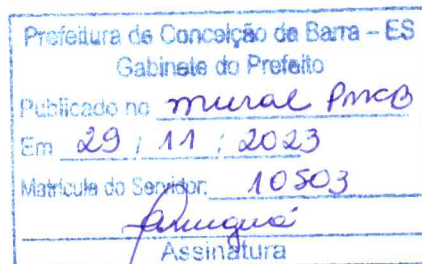 Prefeitura de Conceição da Barra – ES
Gabinete do Prefeito
Publicado no mural PMCB
Em 29 / 11 / 2023
Matrícula do Servidor: 10503
Assinatura